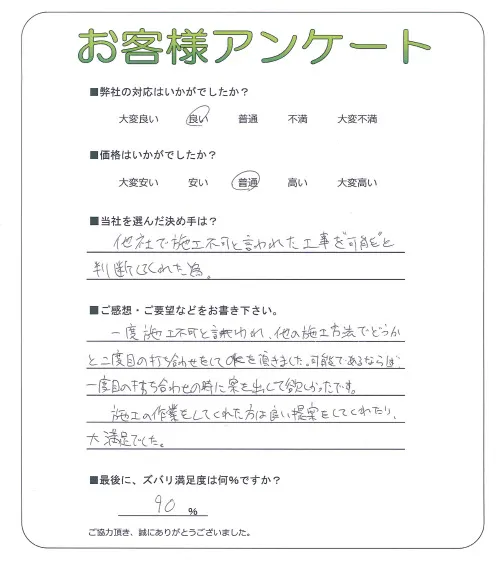 お客様アンケート
■弊社の対応はいかがでしたか？
大変良い 良い 普通 不満 大変不満
■価格はいかがでしたか？
大変安い 安い 普通 高い 大変高い
■当社を選んだ決め手は？
他社で施工不可と言われた工事を可能と
判断してくれた為。
■ご感想・ご要望などをお書き下さい。
一度施工不可と言われ、他の施工方法でどうか
と二度目の打ち合わせをしてOKを頂きました。可能であるならば、
一度目の打ち合わせの時に案を出して欲しかったです。
施工の作業をしてくれた方は良い提案をしてくれたり、
大満足でした。
■最後に、ズバリ満足度は何%ですか？
90 %
ご協力頂き、誠にありがとうございました。